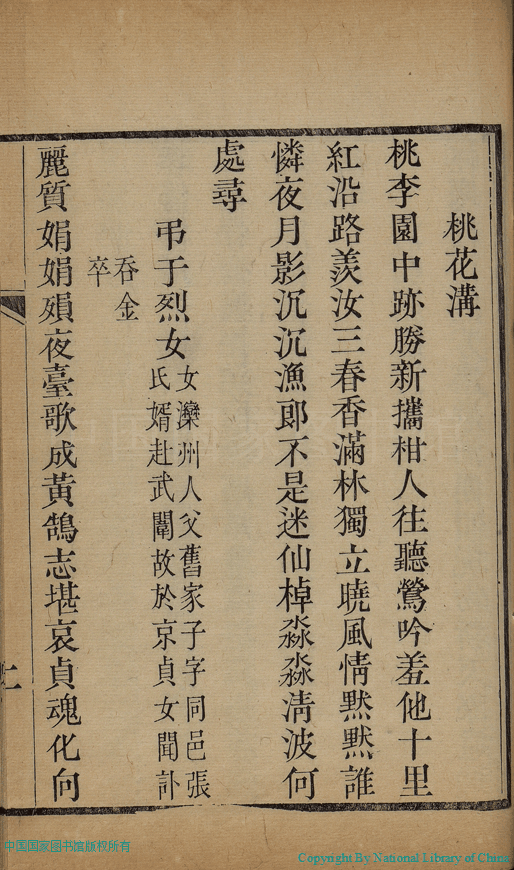 桃花溝
桃李園中跡勝新攜柑人往聽鶯吟羞他十里
紅沿路羨汝三春香滿林獨立曉風情默默誰
憐夜月影沉沉漁郎不是迷仙棹淼淼淸波何
處尋
弔于烈女
女灤州人父舊家子字同邑張
氏婿赴武闈故於京貞女聞訃
吞金
卒
麗質娟娟殞夜臺歌成黃鵠志堪哀貞魂化向
中国国家图书馆版权所有
Copyright By National Library of China